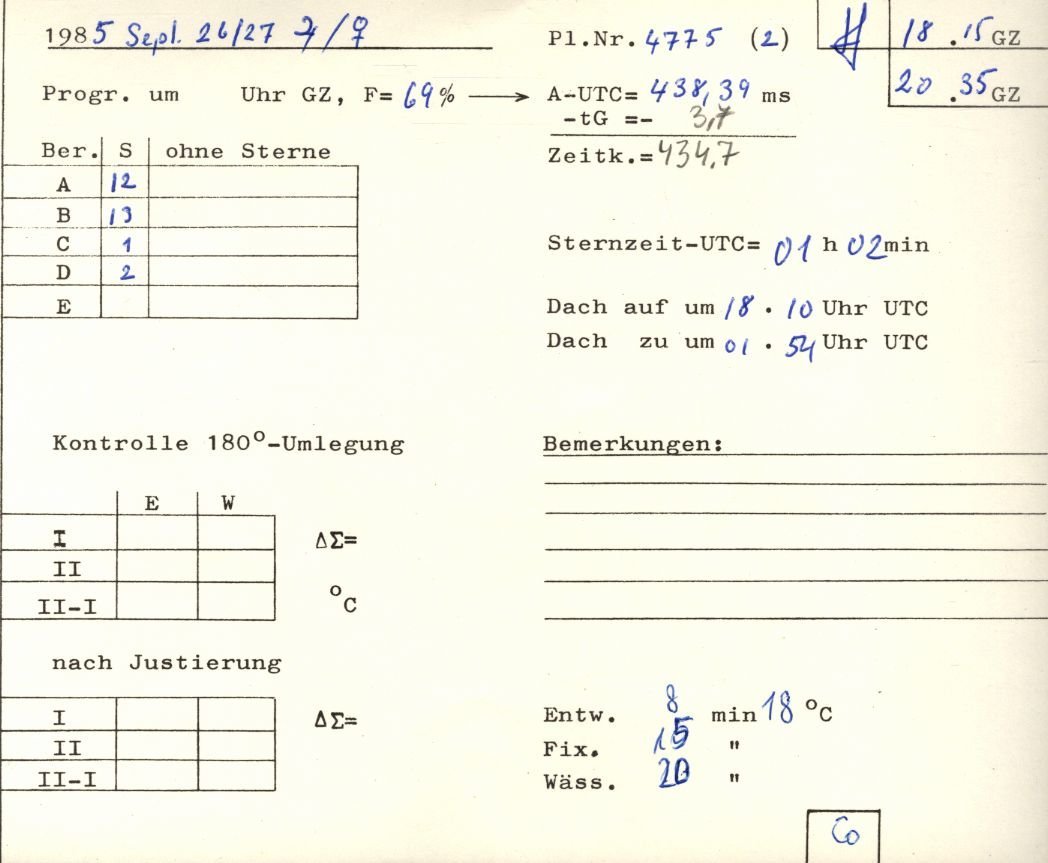 1985 Sept. 26/27 ♃/♀
Pl.Nr. 4775 (2)
18.15 GZ
20.35 GZ
Progr. um Uhr GZ, F= 69% → A-UTC= 438,39 ms
-tG =- 3,7
Zeitk.= 434,7
Ber. S ohne Sterne
A 12
B 13
C 1
D 2
E
Sternzeit-UTC= 01 h 02 min
Dach auf um 18 . 10 Uhr UTC
Dach zu um 01 . 54 Uhr UTC
Kontrolle 180°-Umlegung
E W
I ΔΣ=
II
II-I °C
Bemerkungen:
nach Justierung
I ΔΣ=
II
II-I
Entw. 8 min 18 °C
Fix. 15 "
Wäss. 20 "
Co